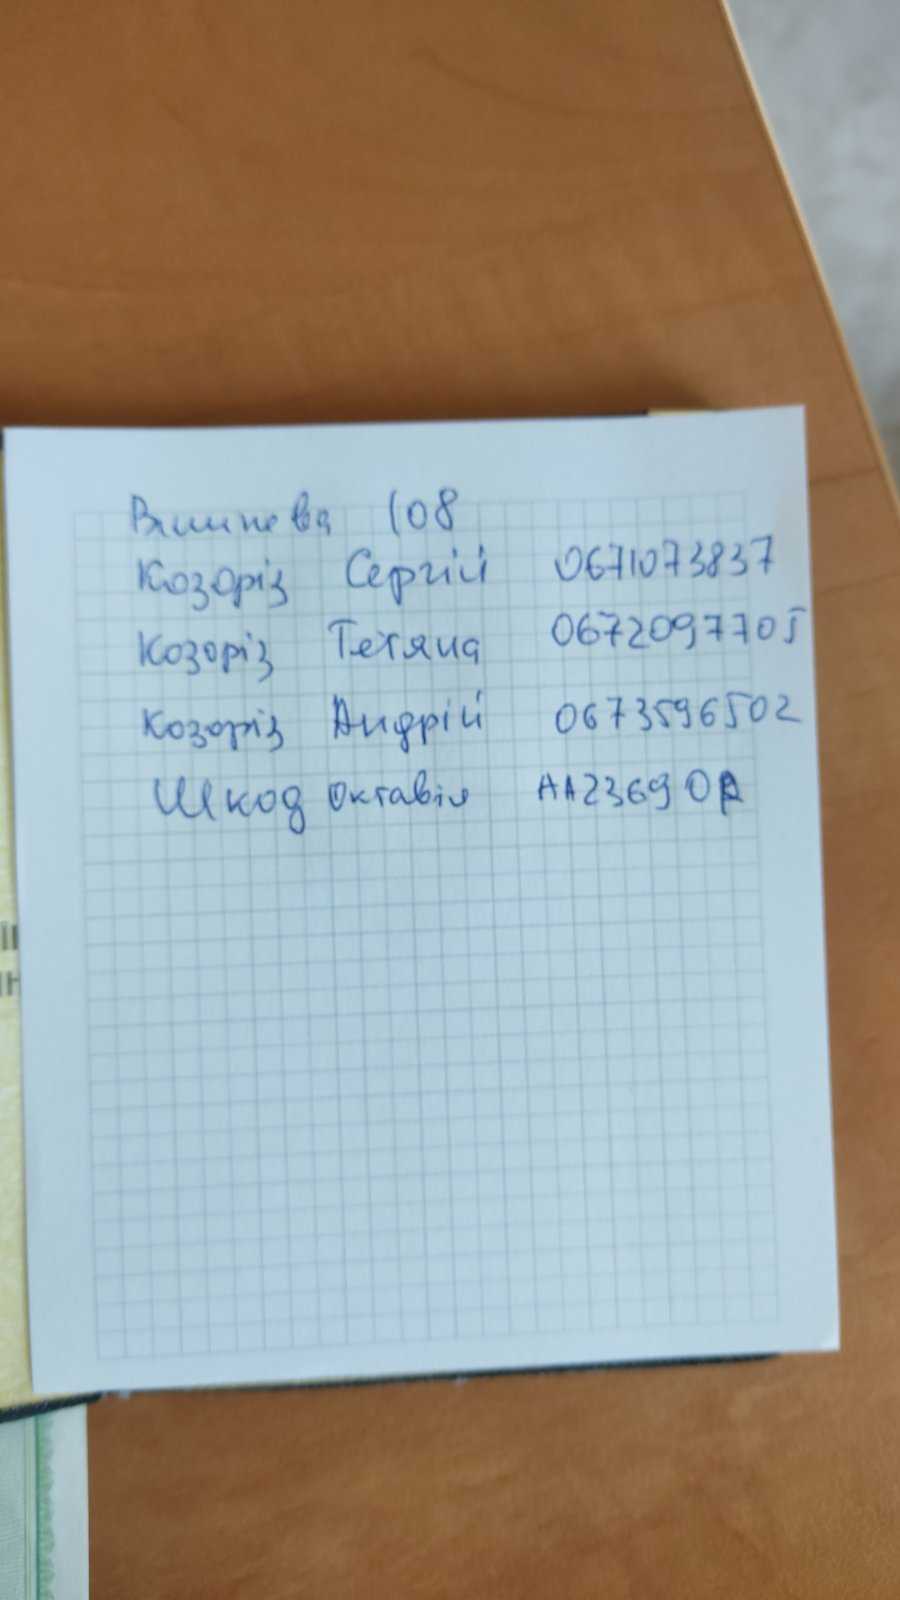 Вишнева 108
Козоріз Сергій 0671073837
Козоріз Тетяна 0672097705
Козоріз Андрій 0673596502
Шкод Октавія АА2369ОА